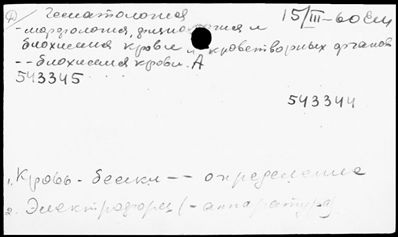 Д) Гематология 15/III-60 Ем
- морфология, физиология и
биохимия крови и кроветворных органов
-- биохимия крови. А
543345
543344
1. Кровь - белки -- определение
2. Электрофорез (- аппаратура)